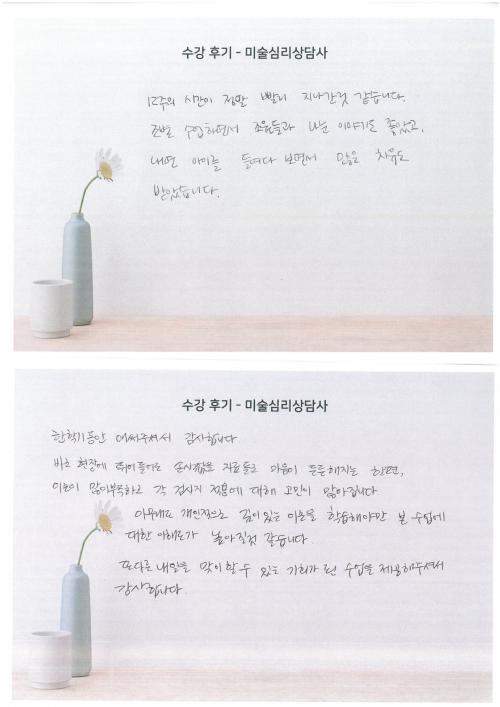 수강 후기 - 미술심리상담사
12주의 시간이 정말 빨리 지나간것 같습니다.
조별 수업하면서 조원들과 나눈 이야기도 좋았고,
내면 아이를 들여다 보면서 많은 치유도
받았습니다.
수강 후기 - 미술심리상담사
한학기동안 애써주셔서 감사합니다.
바로 현장에 뛰어들어도 손색없을 자료들로 마음이 든든해지는 한편,
이론이 많이부족하고 각 검사지 적용에 대해 고민이 많아집니다
아무래도 개인적으로 깊이있는 이론을 학습해야만 본 수업에
대한 이해도가 높아질것 같습니다.
또다른 내일을 맞이할 수 있는 기회가 된 수업을 제공해주셔서
감사합니다.